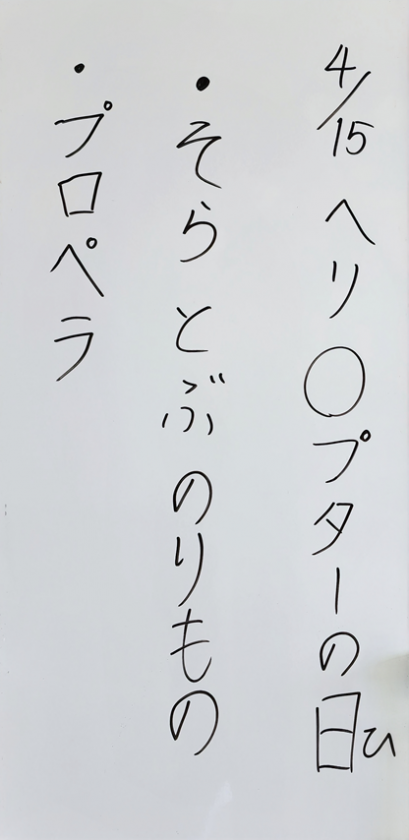 4/15 ヘリ〇プターの日ひ
・そら とぶ のりもの
・プロペラ